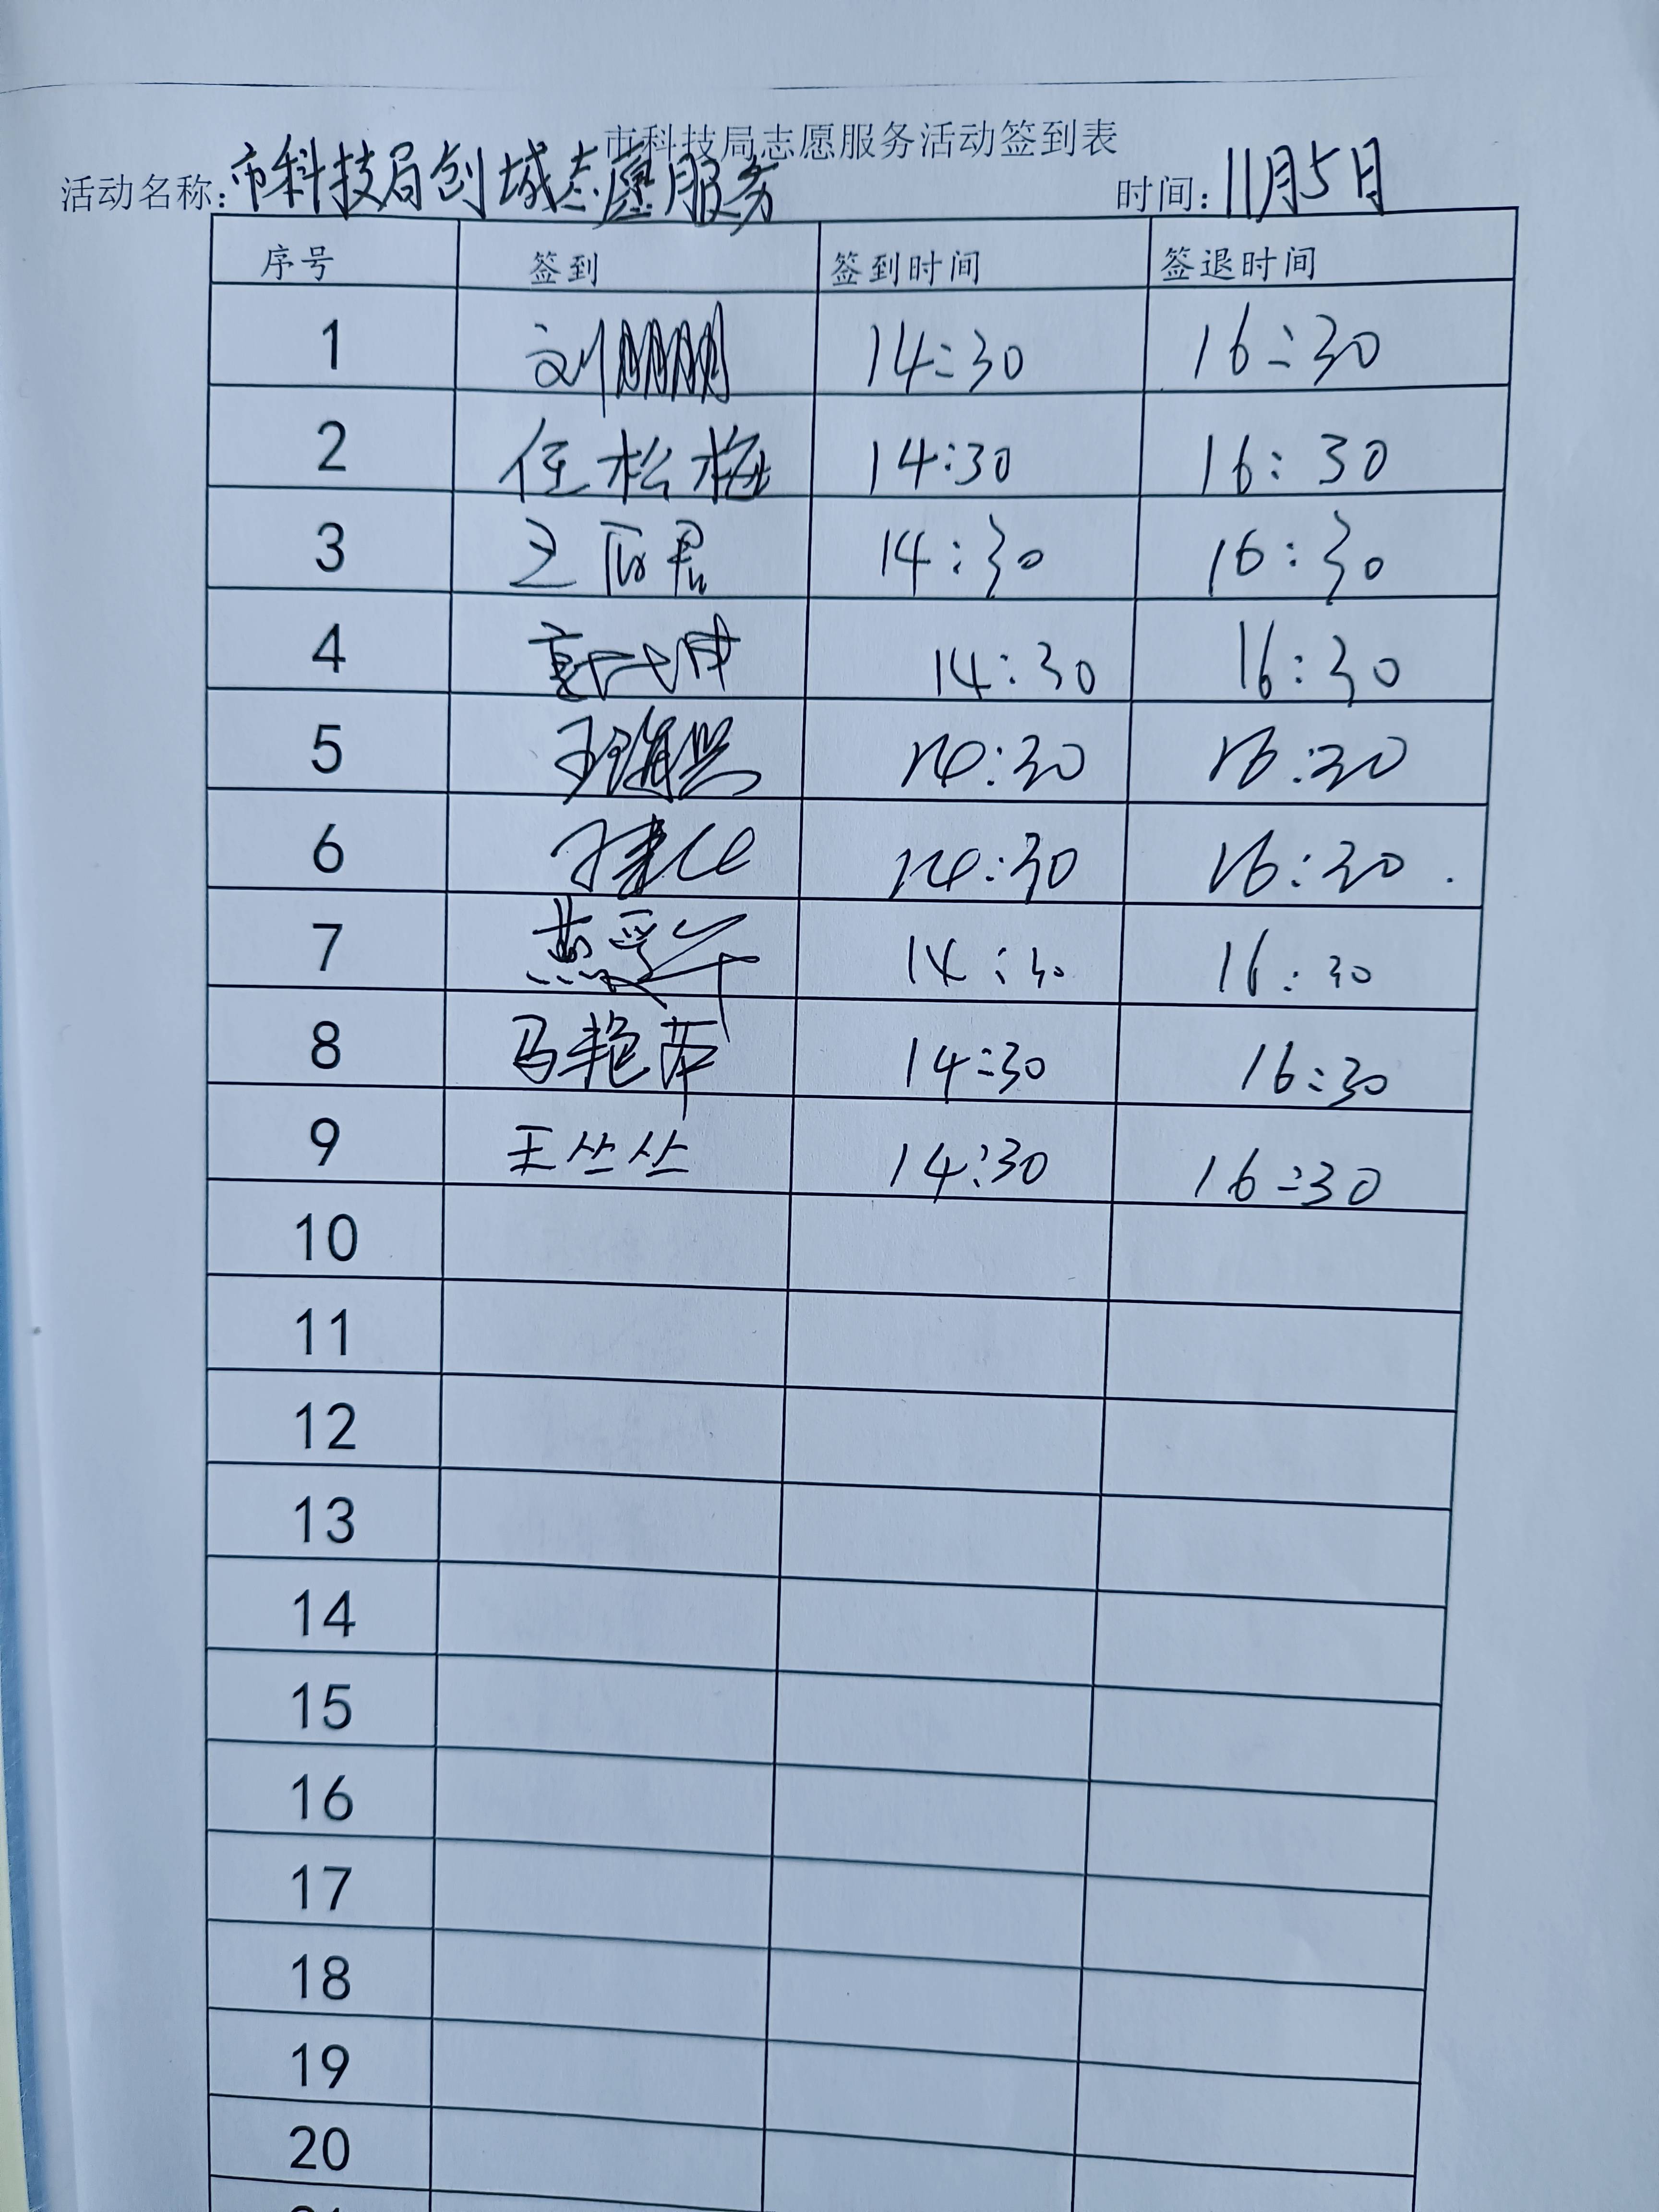 市科技局志愿服务活动签到表
活动名称:市科技局创城志愿服务 时间:11月5日
序号 签到 签到时间 签退时间
1 刘 14:30 16:30
2 任松梅 14:30 16:30
3 王丽君 14:30 16:30
4 14:30 16:30
5 王海燕 14:30 16:30
6 14:30 16:30
7 14:30 16:30
8 马艳苹 14:30 16:30
9 王丛丛 14:30 16:30
10
11
12
13
14
15
16
17
18
19
20